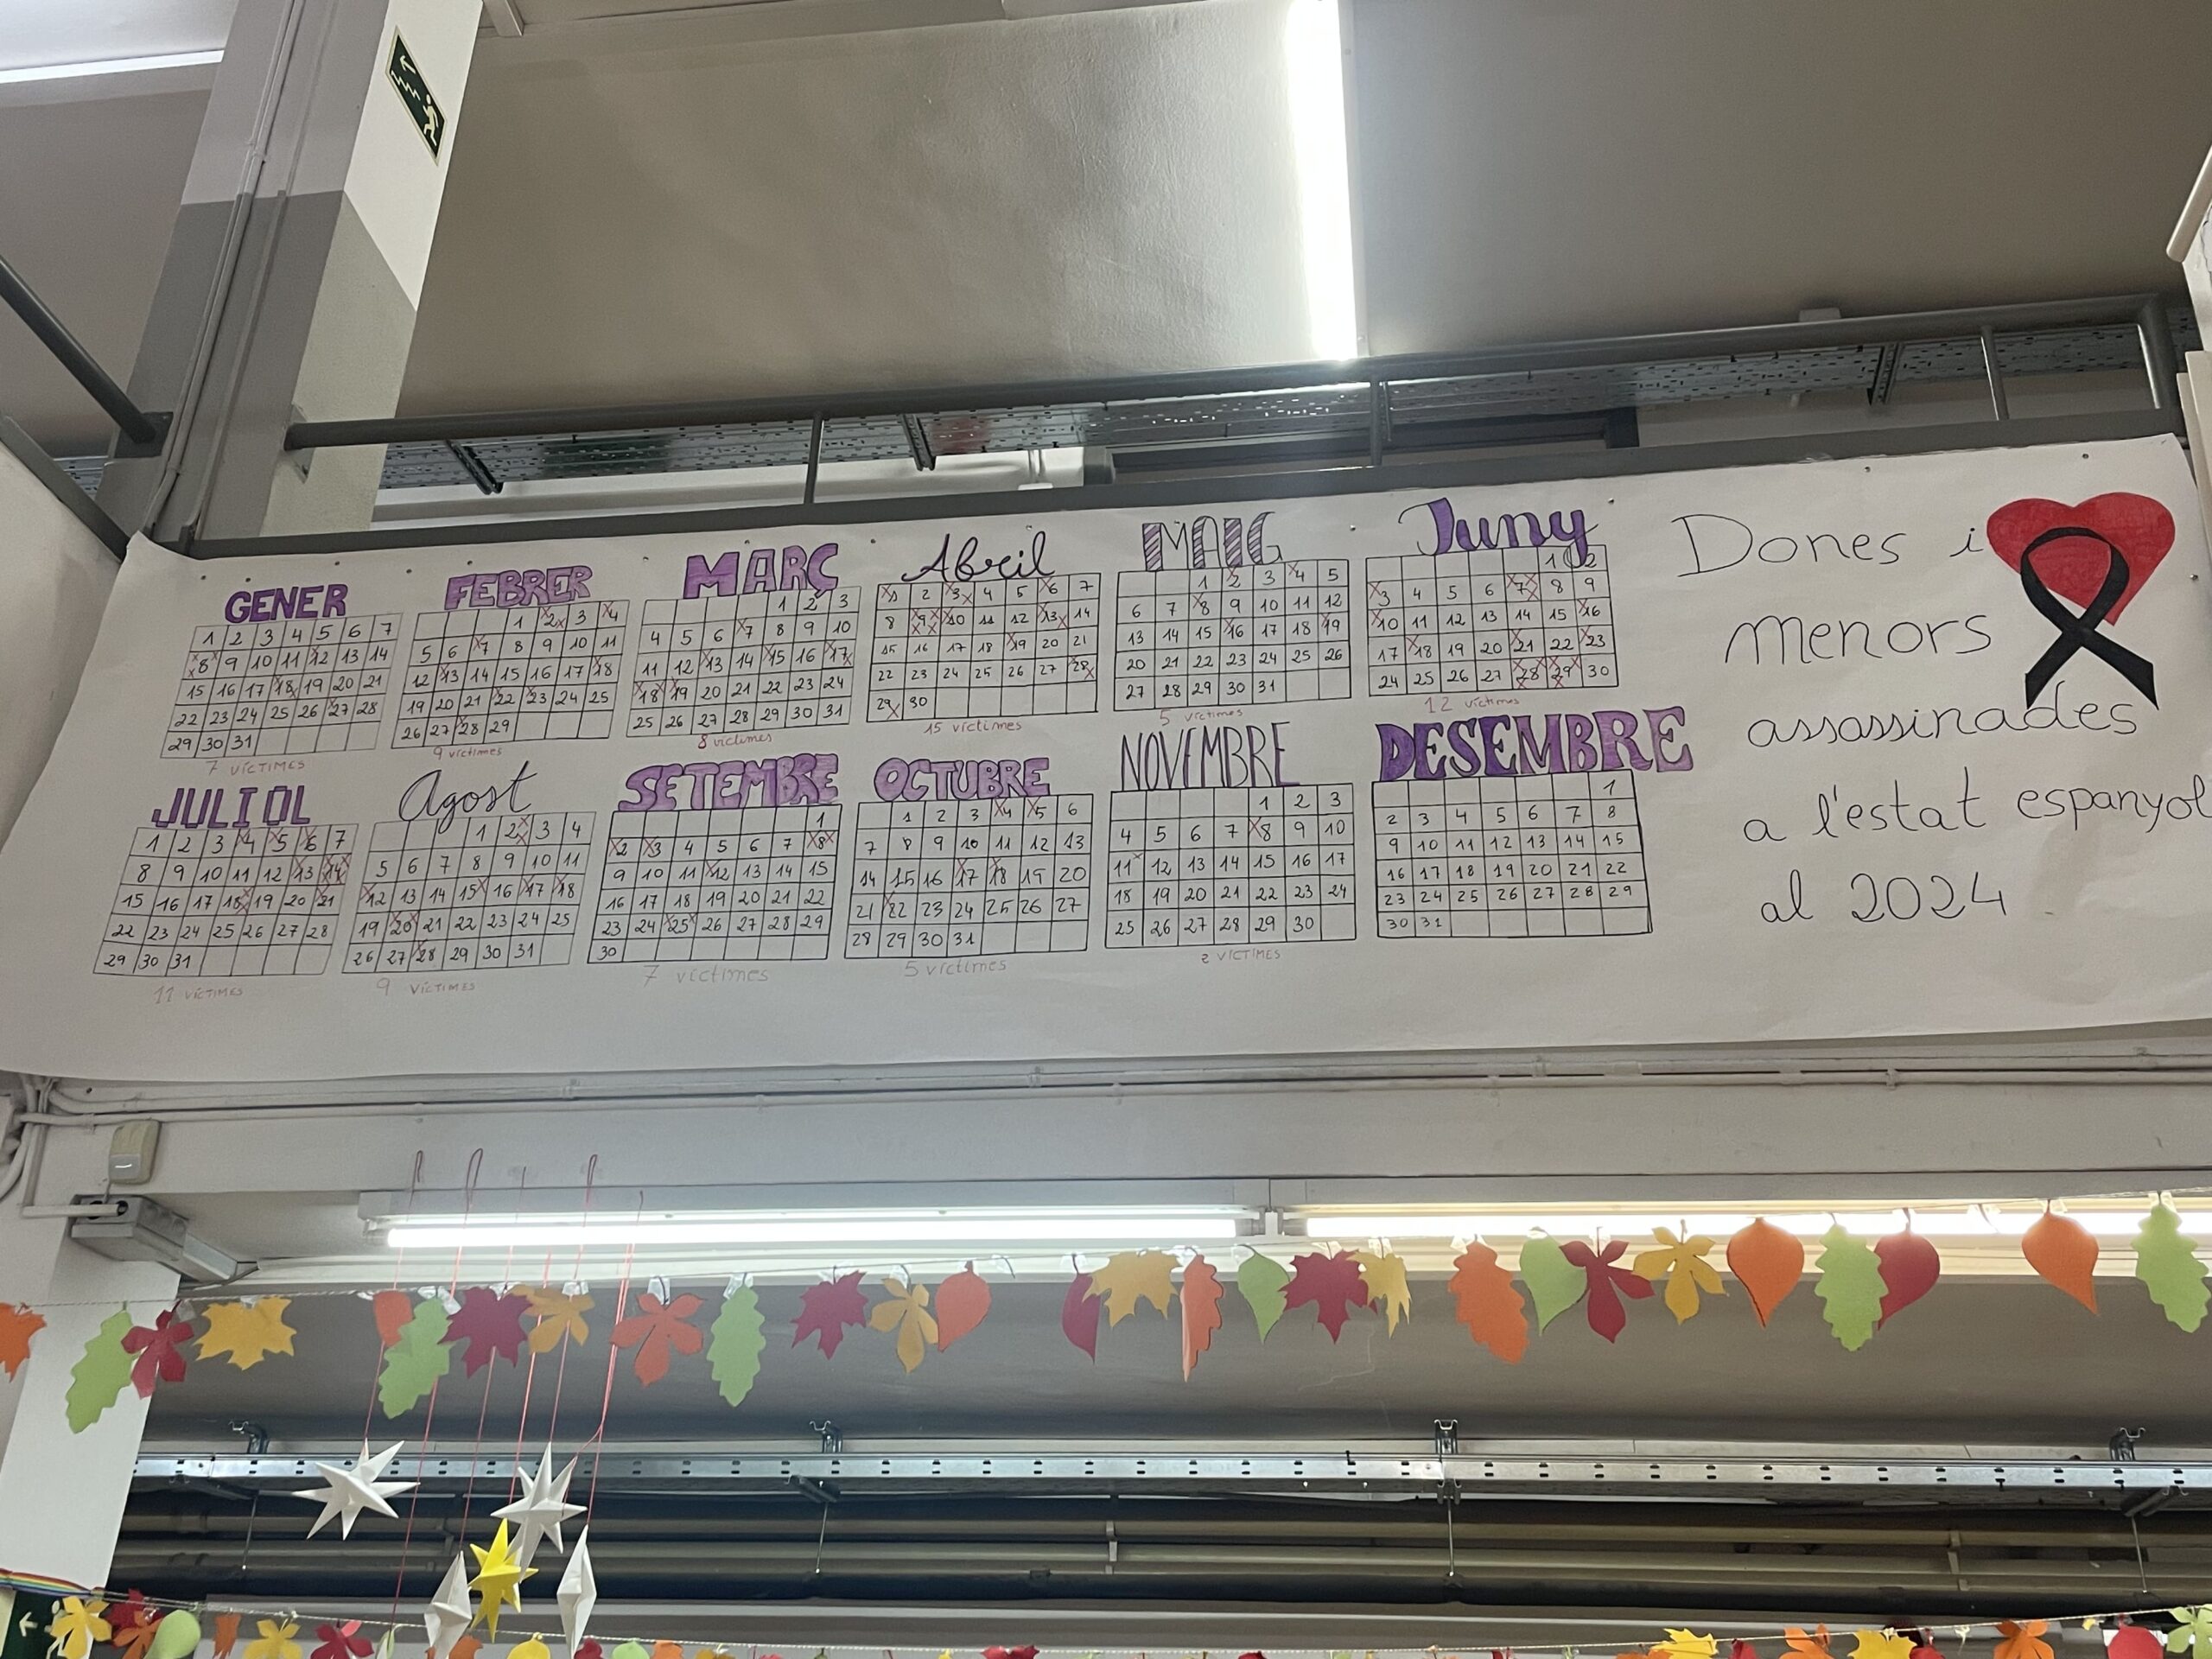 GENER
1 2 3 4 5 6 7
8 9 10 11 12 13 14
15 16 17 18 19 20 21
22 23 24 25 26 27 28
29 30 31
7 VÍCTIMES
FEBRER
1 2 3 4
5 6 7 8 9 10 11
12 13 14 15 16 17 18
19 20 21 22 23 24 25
26 27 28 29
9 víctimes
MARÇ
1 2 3
4 5 6 7 8 9 10
11 12 13 14 15 16 17
18 19 20 21 22 23 24
25 26 27 28 29 30 31
8 víctimes
Abril
1 2 3 4 5 6 7
8 9 10 11 12 13 14
15 16 17 18 19 20 21
22 23 24 25 26 27 28
29 30
15 víctimes
MAIG
1 2 3 4 5
6 7 8 9 10 11 12
13 14 15 16 17 18 19
20 21 22 23 24 25 26
27 28 29 30 31
5 víctimes
Juny
1 2
3 4 5 6 7 8 9
10 11 12 13 14 15 16
17 18 19 20 21 22 23
24 25 26 27 28 29 30
12 víctimes
JULIOL
1 2 3 4 5 6 7
8 9 10 11 12 13 14
15 16 17 18 19 20 21
22 23 24 25 26 27 28
29 30 31
11 VÍCTIMES
Agost
1 2 3 4
5 6 7 8 9 10 11
12 13 14 15 16 17 18
19 20 21 22 23 24 25
26 27 28 29 30 31
9 VÍCTIMES
SETEMBRE
1
2 3 4 5 6 7 8
9 10 11 12 13 14 15
16 17 18 19 20 21 22
23 24 25 26 27 28 29
30
7 víctimes
OCTUBRE
1 2 3 4 5 6
7 8 9 10 11 12 13
14 15 16 17 18 19 20
21 22 23 24 25 26 27
28 29 30 31
5 víctimes
NOVEMBRE
1 2 3
4 5 6 7 8 9 10
11 12 13 14 15 16 17
18 19 20 21 22 23 24
25 26 27 28 29 30
2 VÍCTIMES
DESEMBRE
1
2 3 4 5 6 7 8
9 10 11 12 13 14 15
16 17 18 19 20 21 22
23 24 25 26 27 28 29
30 31
Dones i
menors
assassinades
a l'estat espanyol
al 2024